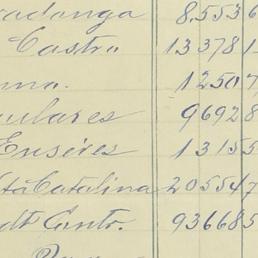 radanga 8553 6
Castro. 13378 1
nna. 12507
ulares 96928
Enseres 13155
ta Catalina 205547
dt Contr. 936685